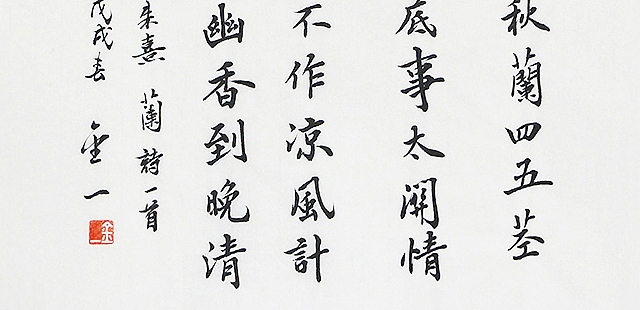 秋蘭四五莖
底事太關情
不作涼風計
幽香到晚清
朱熹 蘭詩一首
戊戌春 金一
金一